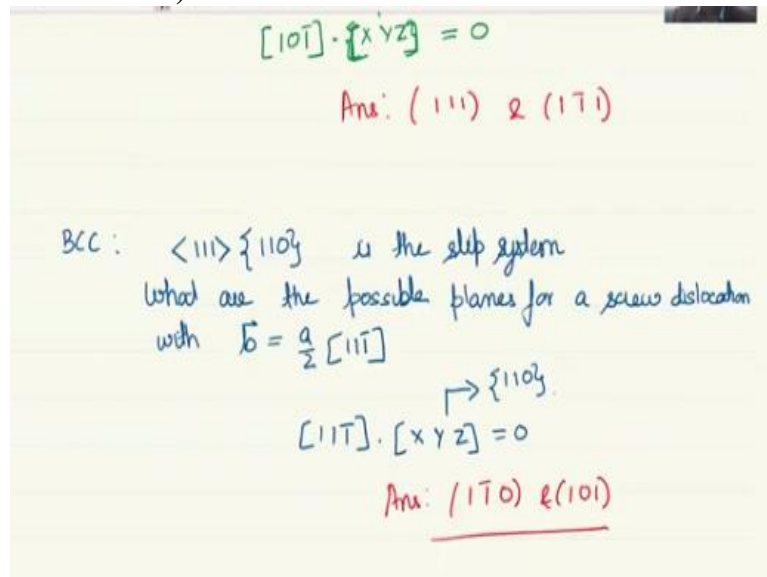 [101̄]·{XYZ} = 0
Ans: (111) & (11̄1)
BCC: <111>{110} is the slip system
What are the possible planes for a screw dislocation
with b⃗ = a/2 [111̄]
→ {110}
[111̄]·[XYZ] = 0
Ans: (11̄0) & (101)